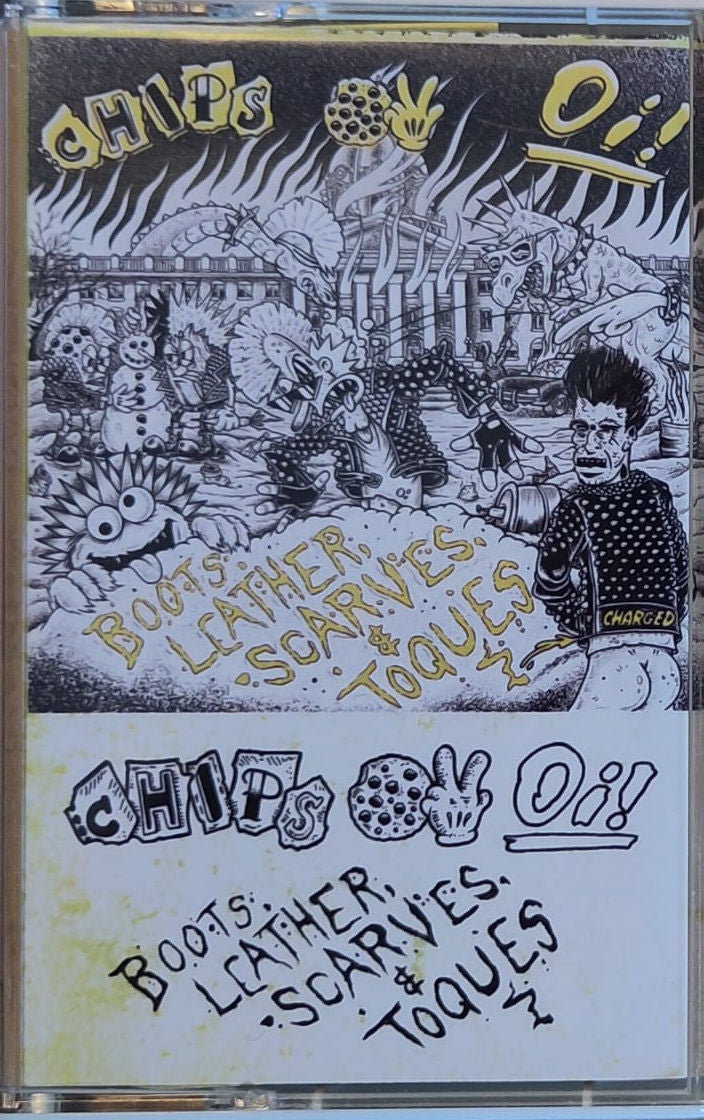 CHIPS OV Oi!
BOOTS,
LEATHER,
SCARVES,
& TOQUES
CHARGED
CHIPS OV Oi!
BOOTS,
LEATHER,
SCARVES,
& TOQUES